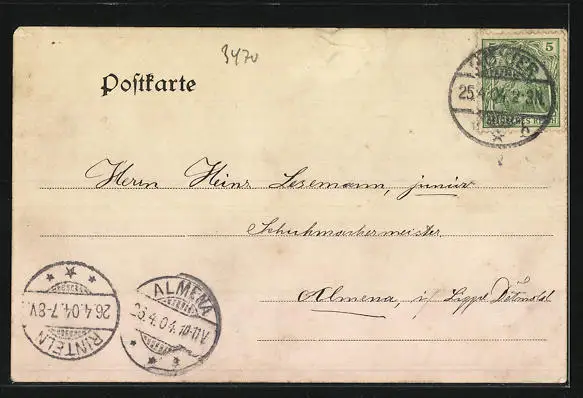 3470
5
Postkarte
HÖXTER
25.4.04. 2-3N.
DEUTSCHES REICH
Herrn Heinr. Lesemann, junior
Schuhmachermeister
Almena, i/ Lippe Detmold
RINTELN
26.4.04.7-8V.
ALMENA
26.4.04.10-11V